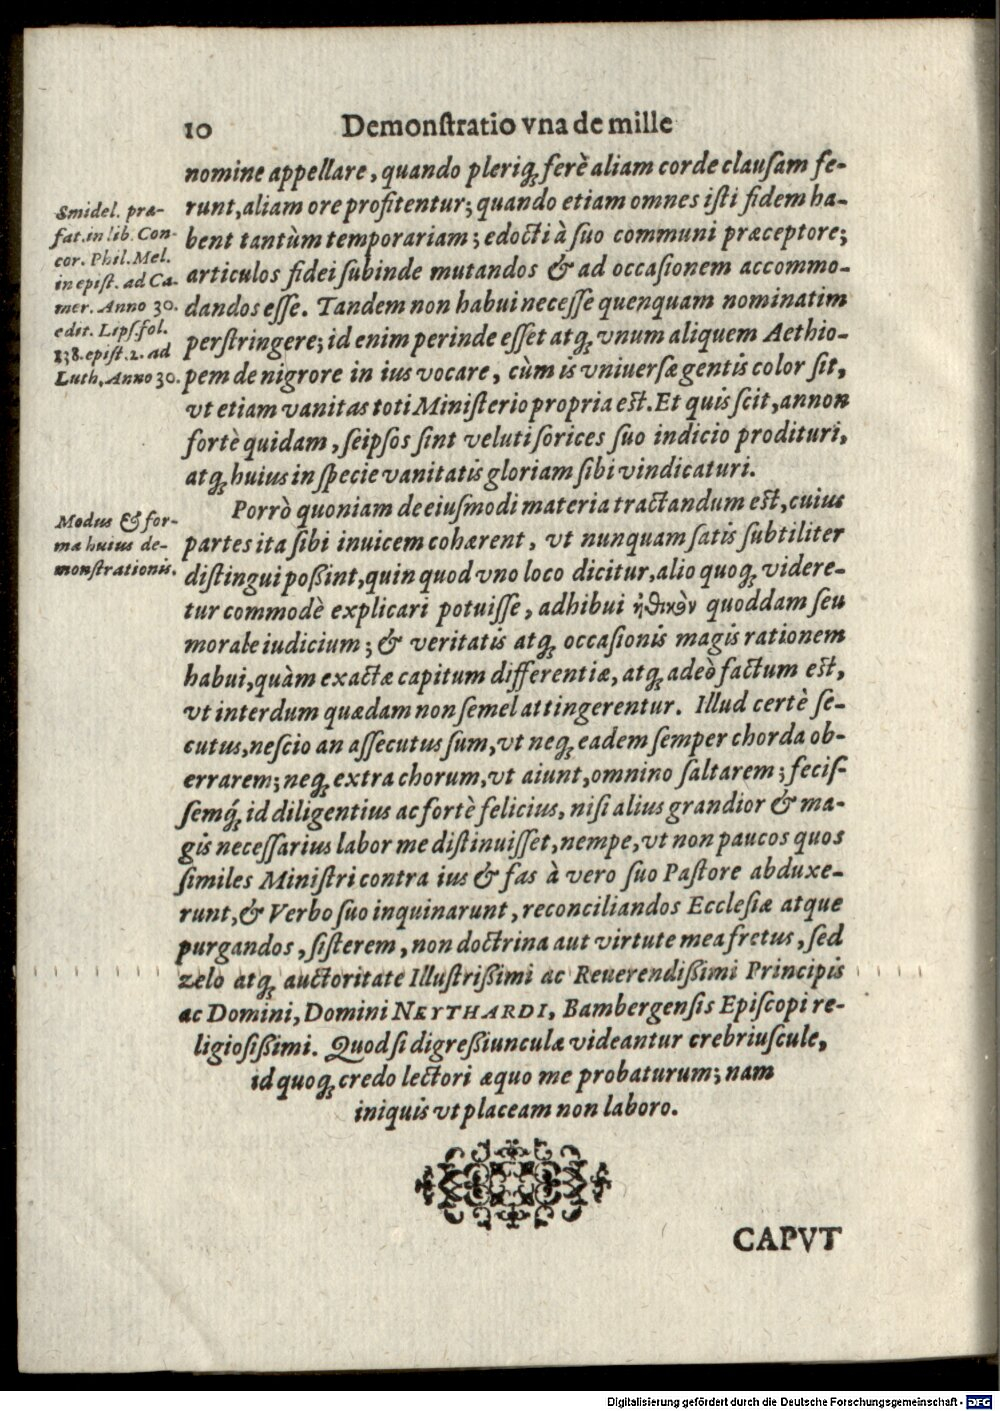 10 Demonſtratio vna de mille
nomine appellare, quando pleriq́; ferè aliam corde clauſam fe-
runt, aliam ore profitentur; quando etiam omnes iſti fidem ha-
bent tantùm temporariam; edocti à ſuo communi præceptore;
articulos fidei ſubinde mutandos & ad occaſionem accommo-
dandos eſſe. Tandem non habui neceſſe quenquam nominatim
perſtringere; id enim perinde eſſet atq; vnum aliquem Aethio-
pem de nigrore in ius vocare, cùm is vniuerſæ gentis color ſit,
vt etiam vanitas toti Miniſterio propria eſt. Et quis ſcit, annon
fortè quidam, ſeipſos ſint veluti ſorices ſuo indicio prodituri,
atq; huius in ſpecie vanitatis gloriam ſibi vindicaturi.
Smidel. præ-
fat. in lib. Con-
cor. Phil. Mel.
in epiſt. ad Ca-
mer. Anno 30.
edit. Lipſ. fol.
138. epiſt. 2. ad
Luth. Anno 30.
Porrò quoniam de eiuſmodi materia tractandum eſt, cuius
partes ita ſibi inuicem cohærent, vt nunquam ſatis ſubtiliter
diſtingui poßint, quin quod vno loco dicitur, alio quoq; videre-
tur commodè explicari potuiſſe, adhibui ἠθικὸν quoddam ſeu
morale iudicium; & veritatis atq; occaſionis magis rationem
habui, quàm exactæ capitum differentiæ, atq; adeò factum eſt,
vt interdum quædam non ſemel attingerentur. Illud certè ſe-
cutus, neſcio an aſſecutus ſum, vt neq; eadem ſemper chorda ob-
errarem; neq; extra chorum, vt aiunt, omnino ſaltarem; feciſ-
ſemq́; id diligentius ac fortè felicius, niſi alius grandior & ma-
gis neceſſarius labor me diſtinuiſſet, nempe, vt non paucos quos
ſimiles Miniſtri contra ius & fas à vero ſuo Paſtore abduxe-
runt, & Verbo ſuo inquinarunt, reconciliandos Eccleſiæ atque
purgandos, ſiſterem, non doctrina aut virtute mea fretus, ſed
zelo atq; auctoritate Illuſtrißimi ac Reuerendißimi Principis
ac Domini, Domini NEYTHARDI, Bambergenſis Epiſcopi re-
ligioſißimi. Quod ſi digreßiunculæ videantur crebriuſcule,
id quoq; credo lectori æquo me probaturum; nam
iniquis vt placeam non laboro.
Modus & for-
ma huius de-
monſtrationis.
CAPVT
Digitalisierung gefördert durch die Deutsche Forschungsgemeinschaft - DFG